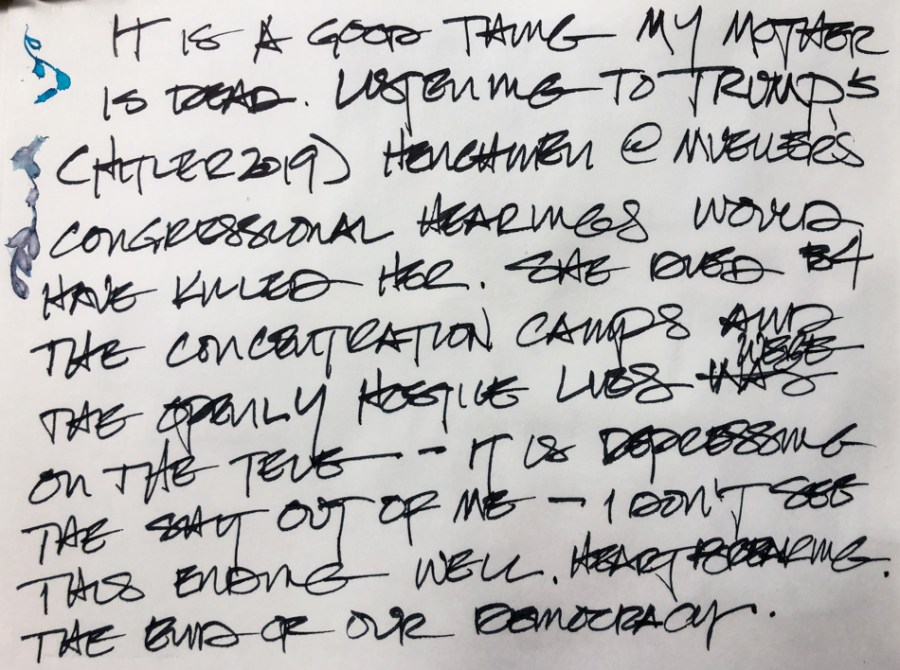 IT IS A GOOD THING MY MOTHER
IS DEAD. LISTENING TO TRUMP'S
(HITLER2019) HENCHMEN @ MUELLER'S
CONGRESSIONAL HEARINGS WOULD
HAVE KILLED HER. SHE DIED B4
THE CONCENTRATION CAMPS AND
THE OPENLY HOSTILE LIES WERE
ON THE TELE -- IT IS DEPRESSING
THE SHIT OUT OF ME - I DON'T SEE
THIS ENDING WELL. HEARTBREAKING.
THE END OF OUR DEMOCRACY.